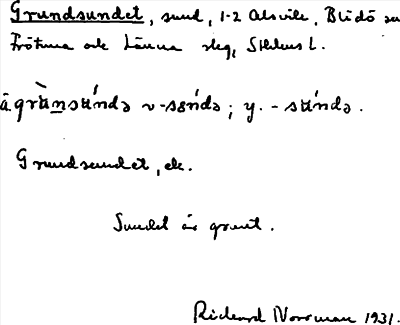 Grundsundet, sund, 1-2 Alsvik, Blidö sn
Frötuna och Länna skg, Sthlms l.
grùnsún̄də v-søńdə; y. - sún̄də.
Grundsundet, ek.
Sundet är grunt.
Rickard Norrman 1931.